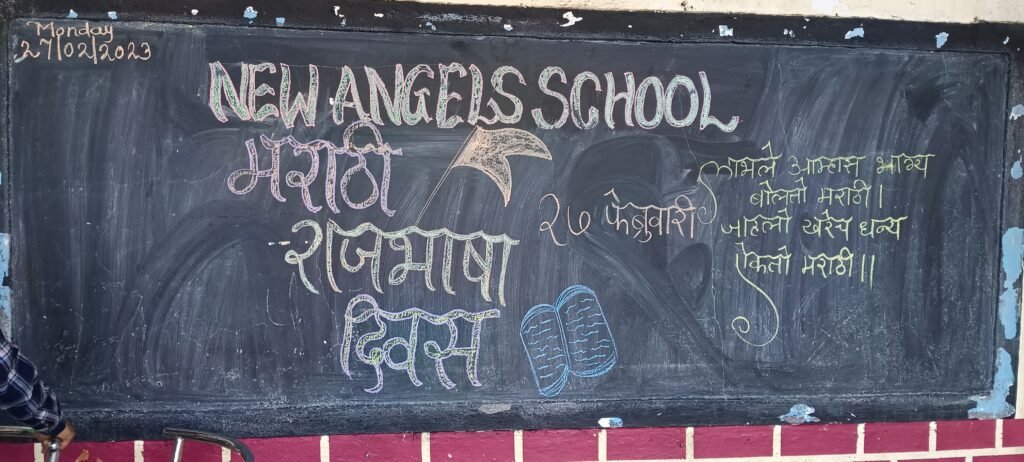 Monday
27/02/2023
NEW ANGELS SCHOOL
मराठी
राजभाषा
दिवस
२७ फेब्रुवारी
लाभले आम्हास भाग्य
बोलतो मराठी।
जाहलो खरेच धन्य
ऐकतो मराठी।।